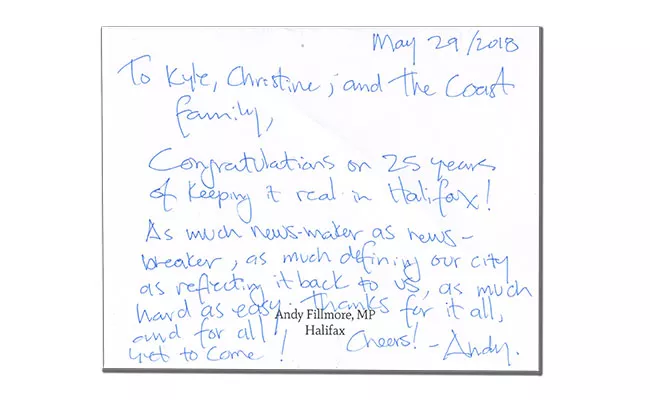 May 29/2018
To Kyle, Christine, and the Coast
family,
Congratulations on 25 years
of keeping it real in Halifax!
As much news-maker as news-
breaker, as much defining our city
as reflecting it back to us, as much
hard as easy. Thanks for it all,
Andy Fillmore, MP
and for all
Halifax
yet to come! Cheers! - Andy.